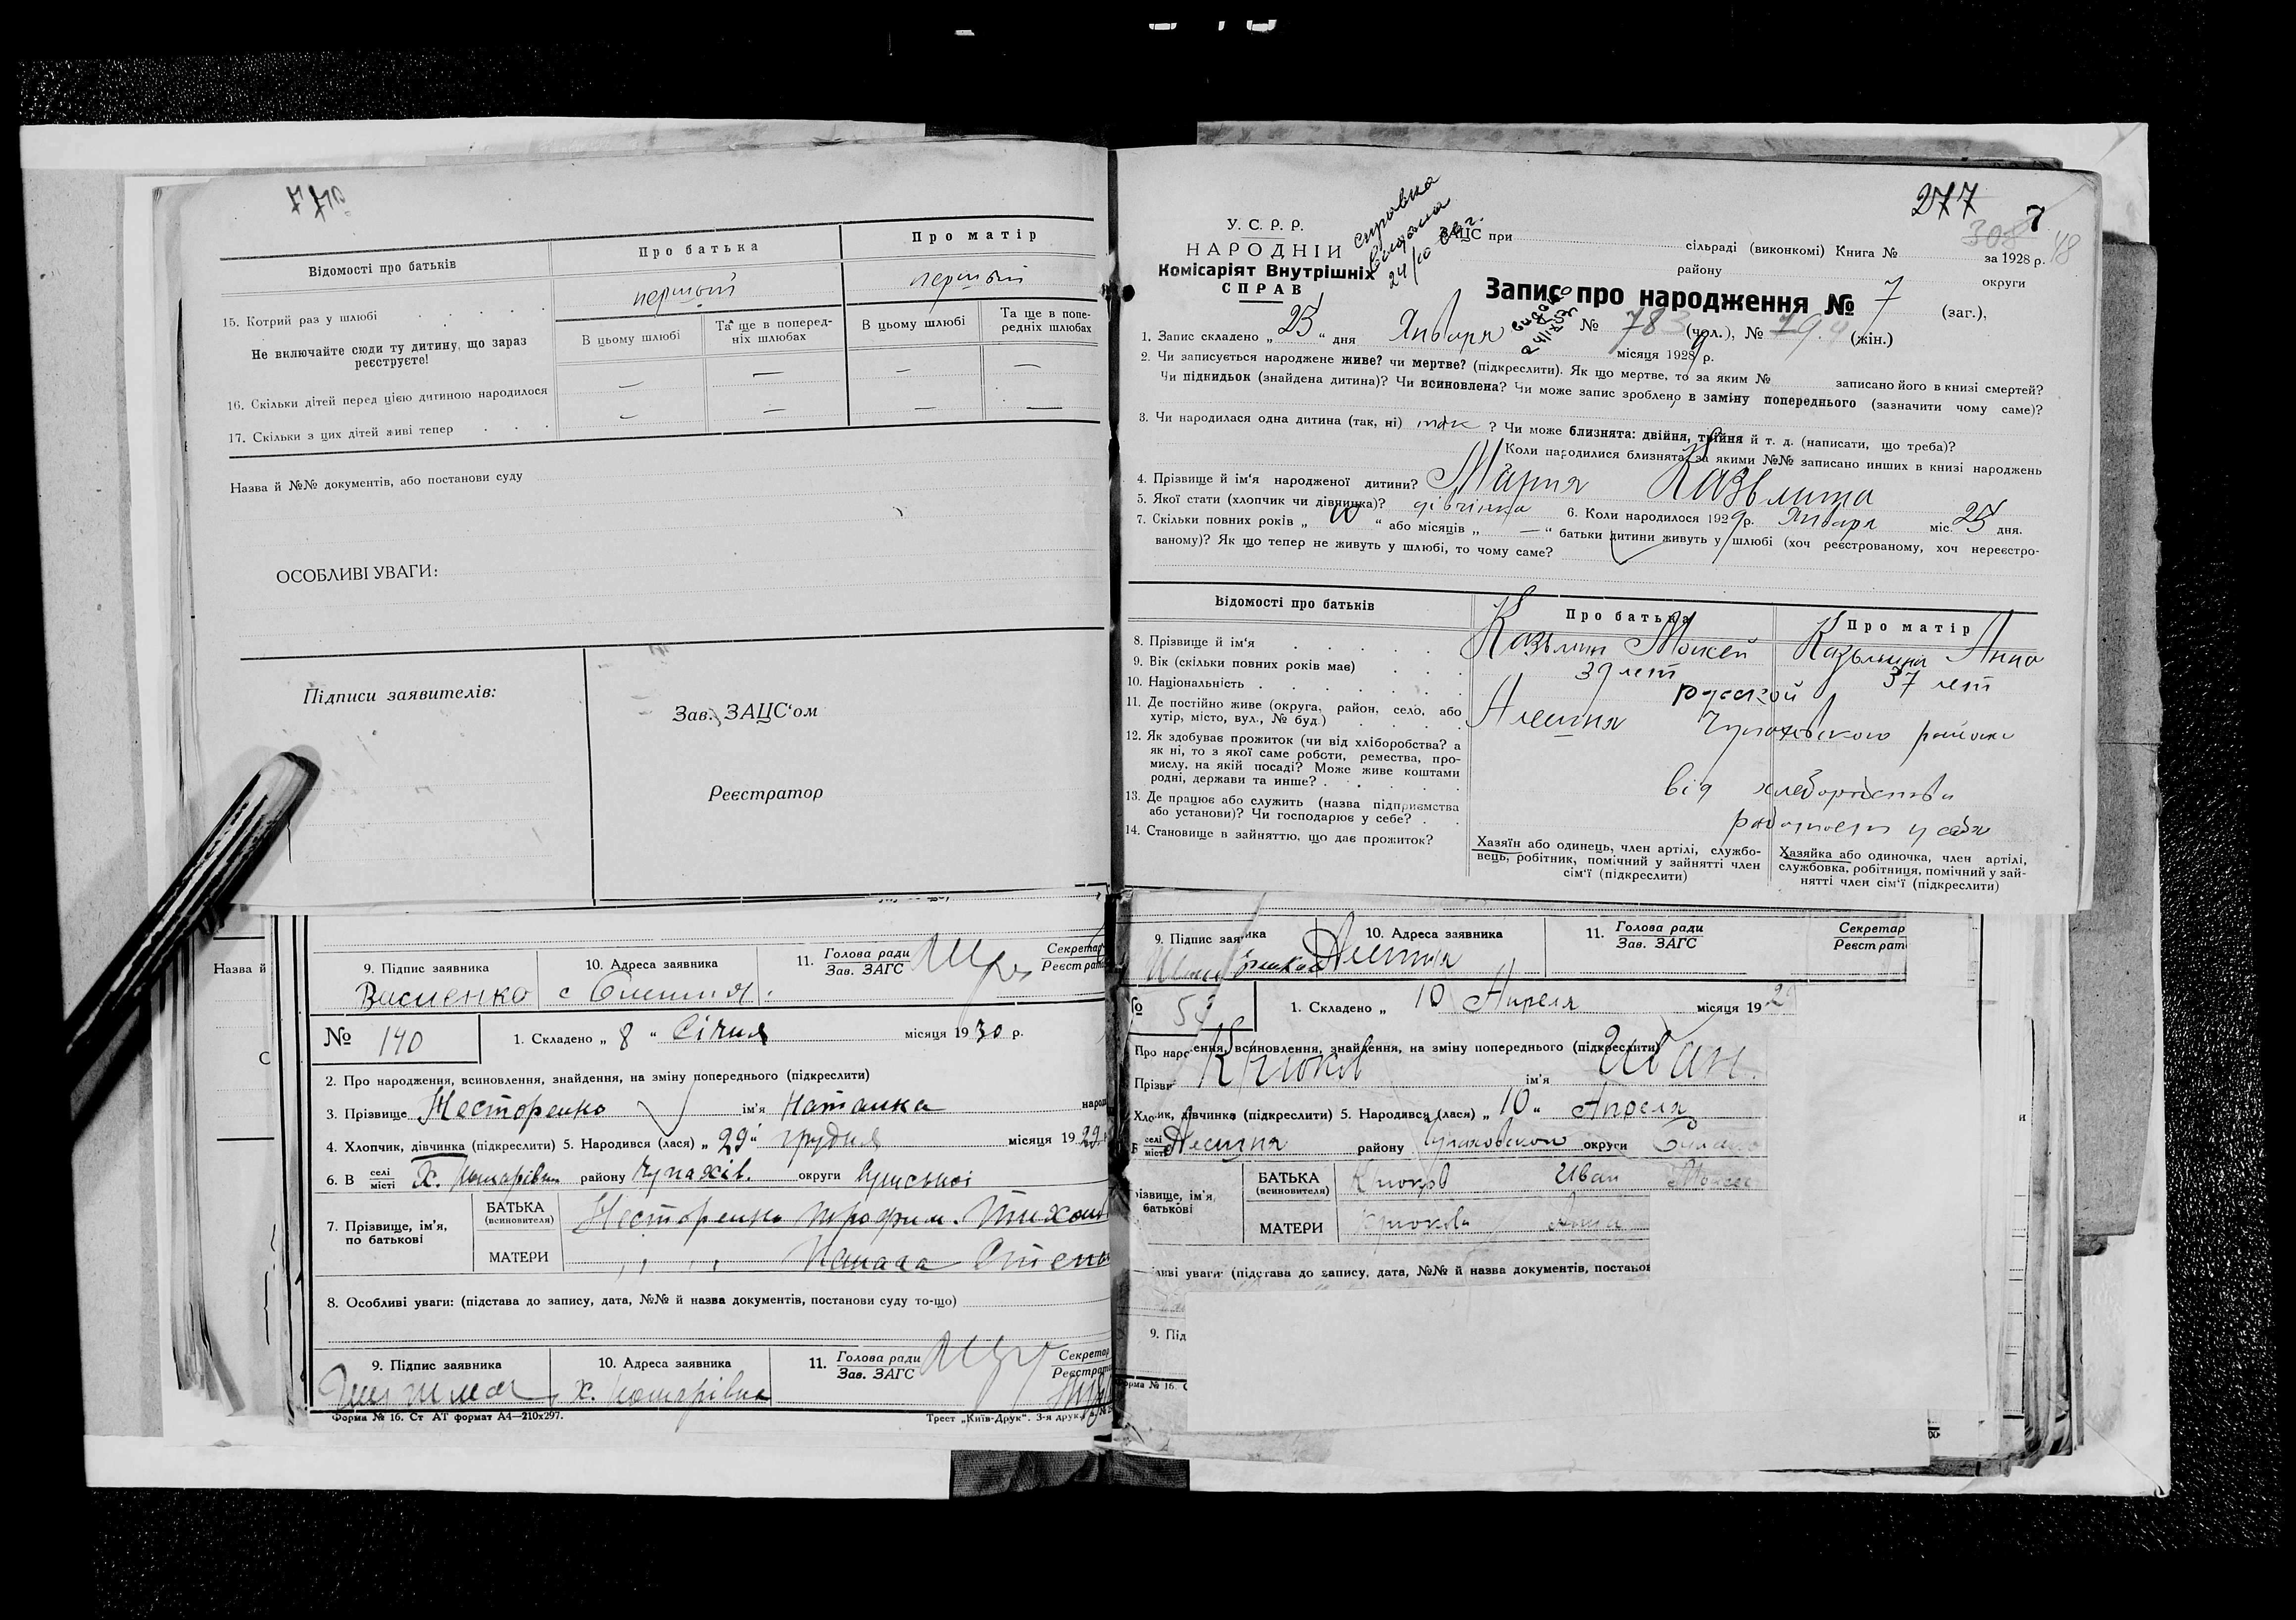 Відомості про батьків
Про батька
Про матір
15. Котрий раз у шлюбі
первый
первый
Не включайте сюди ту дитину, що зараз реєструєте!
В цьому шлюбі
Та ще в поперед-
ніх шлюбах
В цьому шлюбі
Та ще в попе-
редніх шлюбах
16. Скільки дітей перед цією дитиною народилося
— — — —
17. Скільки з цих дітей живі тепер
— — — —
Назва й №№ документів, або постанови суду
ОСОБЛИВІ УВАГИ:
Підписи заявителів:
Зав. ЗАЦС‘ом
Реєстратор
Назва й
9. Підпис заявника
10. Адреса заявника
11. Голова ради
Зав. ЗАГС
Секретар
Реєстрат
Василенко
№ 140
1. Складено „ 8 “ Січня місяця 1930 р.
2. Про народження, всиновлення, знайдення, на зміну попереднього (підкреслити)
3. Прізвище Несторенко ім'я Наталка народ
4. Хлопчик, дівчинка (підкреслити) 5. Народився (лася) „ 29 “ грудня місяця 1929
6. В селі
місті
району Чупахів. округи Сумської
7. Прізвище, ім'я,
по батькові
БАТЬКА
(всиновителя)
Несторенко Трофим
МАТЕРИ
8. Особливі уваги: (підстава до запису, дата, №№ й назва документів, постанови суду то-що)
9. Підпис заявника
10. Адреса заявника
11. Голова ради
Зав. ЗАГС
Секретар
Реєстрат
Форма № 16. Ст АТ формат А4—210х297.
Трест „Київ-Друк“. 3-я друк.
277
7
308
48
У. С. Р. Р.
НАРОДНІЙ
Комісаріят Внутрішніх
СПРАВ
справка
24/10
ЗАЦС при сільраді (виконкомі) Книга № за 1928 р.
району округи
Запис про народження № 7 (заг.),
№ 78 (чол.), № (жін.)
1. Запис складено „ 25 “ дня Января місяця 1929 р.
2. Чи записується народжене живе? чи мертве? (підкреслити). Як що мертве, то за яким № записано його в книзі смертей?
Чи підкидьок (знайдена дитина)? Чи всиновлена? Чи може запис зроблено в заміну попереднього (зазначити чому саме)?
3. Чи народилася одна дитина (так, ні) так ? Чи може близнята: двійня, трійня й т. д. (написати, що треба)?
Коли народилися близнята, за якими №№ записано инших в книзі народжень
4. Прізвище й ім‘я народженої дитини? Мария
5. Якої стати (хлопчик чи дівчинка)? дівчинка 6. Коли народилося 1929 р. Января міс. 25 дня.
7. Скільки повних років „ 10 “ або місяців „ — “ батьки дитини живуть у шлюбі (хоч реєстрованому, хоч нереєстро-
ваному)? Як що тепер не живуть у шлюбі, то чому саме?
Відомості про батьків
Про батька
Про матір
8. Прізвище й ім‘я
Казьмин Моисей
Казьмина Анна
9. Вік (скільки повних років має)
39 лет
37 лет
10. Національність
русской
11. Де постійно живе (округа, район, село, або
хутір, місто, вул., № буд.)
Алешня Чупаховского района
12. Як здобуває прожиток (чи від хліборобства? а
як ні, то з якої саме роботи, ремества, про-
мислу, на якій посаді? Може живе коштами
родні, держави та инше?
від хлеборобства
13. Де працює або служить (назва підприємства
або установи)? Чи господарює у себе?
работает у себя
14. Становище в зайняттю, що дає прожиток?
Хазяїн або одинець, член артілі, службо-
вець, робітник, помічний у зайнятті член
сім‘ї (підкреслити)
Хазяйка або одиночка, член артілі,
службовка, робітниця, помічний у зай-
нятті член сім‘ї (підкреслити)
9. Підпис заявника
10. Адреса заявника
Алешня
11. Голова ради
Зав. ЗАГС
Секретар
Реєстрат
1. Складено „ 10 Апреля місяця 192
Про народження, всиновлення, знайдення, на зміну попереднього (підкреслити)
Крюков ім'я Иван
Хлопчик, дівчинка (підкреслити) 5. Народився (лася) „ 10 “ Апреля
селі
місті
Алешня району Чупаховского округи
різвище, ім'я,
батькові
БАТЬКА
(всиновителя)
Крюков Иван
МАТЕРИ
Крюкова
ливі уваги (підстава до запису, дата, №№ й назва документів, постанов
9. Під
орма № 16.